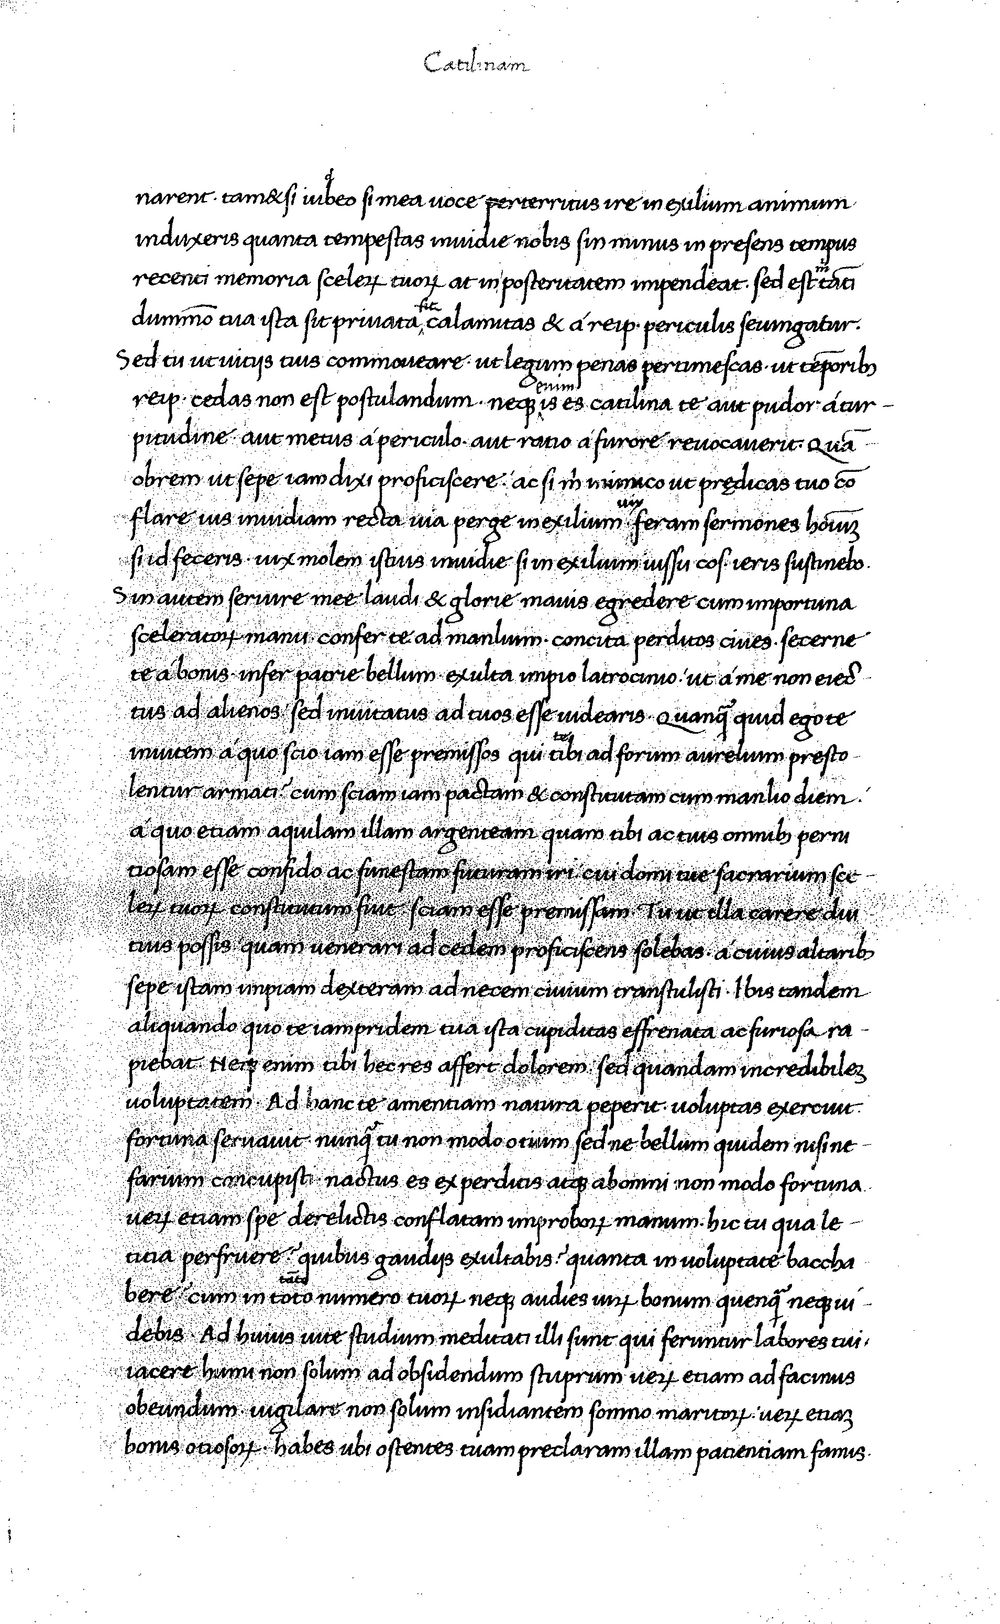 Catilinam
narent· tam&si iubeo si mea uoce perterritus ire in exilium animum
induxeris quanta tempestas inuidie nobis sin minus in presens tempus
recenti memoria scelerꝝ tuorꝝ at in posteritatem impendeat· sed est m̄ tāti
dummō tua ista sit priuata sit calamitas & á reip· periculis seiungatur·
Sed tu ut uitijs tuis commoueare· ut legum penas pertimescas· ut tēporibꝫ
reip· cedas non est postulandum· neqꝫ enim is es catilina te aut pudor á tur-
pitudine· aut metus á periculo· aut ratio á furore reuocauerit· Quā-
obrem ut sepe iam dixi proficiscere· ac si m̄ inimico ut prędicas tuo cō
flare uis inuidiam recta uia perge in exilium· uix feram sermones hoīuꝫ
si id feceris· uix molem istius inuidie si in exilium iussu cos· ieris sustinebo·
Sin autem seruire mee laudi & glorie mauis egredere cum importuna
sceleratorꝝ manu· confer te ad manlium· concita perditos ciues· secerne
te á bonis· infer patrie bellum· exulta impio latrocinio· ut á me non eiec-
tus ad alienos· sed inuitatus ad tuos esse uidearis· Quanqꝫ̄ quid ego te
inuitem á quo scio iam esse premissos qui tibi ad forum aurelium presto-
lentur armati? cum sciam iam pactam & constitutam cum manlio diem·
á quo etiam aquilam illam argenteam quam tibi ac tuis omnibꝫ perni
tiosam esse confido ac funestam futuram iri· cui domi tue sacrarium sce-
lerꝝ tuorꝝ constitutum fuit· sciam esse premissam· Tu ut illa carere diu
tius possis· quam uenerari ad cedem proficiscens solebas· á cuius altaribꝫ
sepe istam impiam dexteram ad necem ciuium transtulisti· Ibis tandem
aliquando quo te iampridem tua ista cupiditas effrenata ac furiosa ra-
piebat· Neqꝫ enim tibi hec res affert dolorem· sed quandam incredibileꝫ
uoluptatem· Ad hanc te amentiam natura peperit· uoluptas exercuit·
fortuna seruauit· nunqꝫ̄ tu non modo otium sed ne bellum quidem nisi ne-
farium concupisti· nactus es ex perditis atqꝫ ab omni non modo fortuna
uerꝝ etiam spe derelictis conflatam improborꝝ manum· hic tu qua le-
titia perfruere? quibus gaudijs exultabis? quanta in uoluptate baccha
bere? cum in toto numero tuorꝝ neqꝫ audies uirꝝ bonum quenqꝫ̄ neqꝫ ui-
debis· Ad huius uite studium meditati illi sunt qui feruntur labores tui·
iacere humi non solum ad obsidendum stuprum uerꝝ etiam ad facinus
obeundum· uigilare non solum insidiantem somno maritorꝝ· uerꝝ etiaꝫ
bonis otiosorꝝ· habes ubi ostentes tuam preclaram illam patientiam famis·